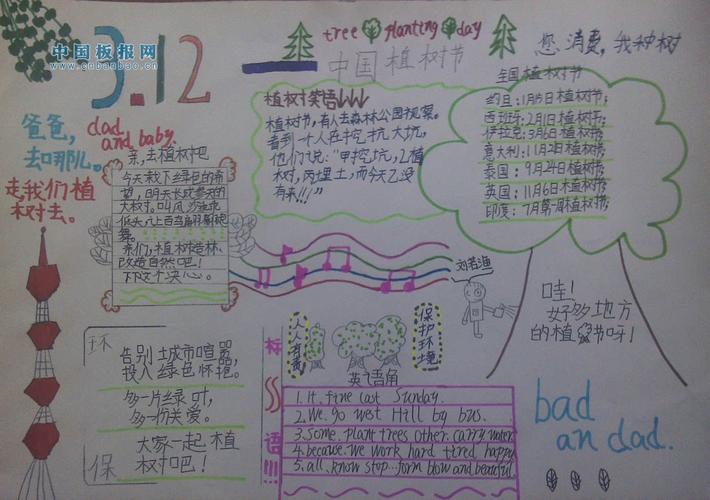 中国板报网
www.cnbanbao.cn
3.12
tree planting day
中国植树节
您消费，我种树
爸爸，
去哪儿。
走,我们植
树去。
dad
and baby.
亲,去植树吧
今天栽下绿色的希
望，明天长成参天的
大树。
亲们,植树造林,
改造自然吧！
下个决心。
植树笑语↓↓↓
植树节，有人去森林公园视察。
看到一个人在挖坑大坑，
他们说："甲挖坑，乙植
树，丙埋土，而今天乙没
有来!!!"
全国植树节
约旦：1月15日植树节；
西班牙：2月1日植树节；
伊拉克：3月6日植树节；
意大利：11月21日植树节；
泰国：9月24日植树节；
英国：11月6日植树节；
印度：7月第一周植树节；
刘若渔
哇！
好多地方
的植树节呀！
环
保
告别城市喧嚣，
投入绿色怀抱。
多一片绿叶，
多一份关爱。
大家一起植
树吧！
标
语!!!
人人有责
保护环境
英语角
1. It fine last Sunday.
2. We go west Hill by bus.
3. Some plant trees other carry water
4. because we work hard tired, happy
5. all know stop...form blow and beautiful.
bad
an dad.